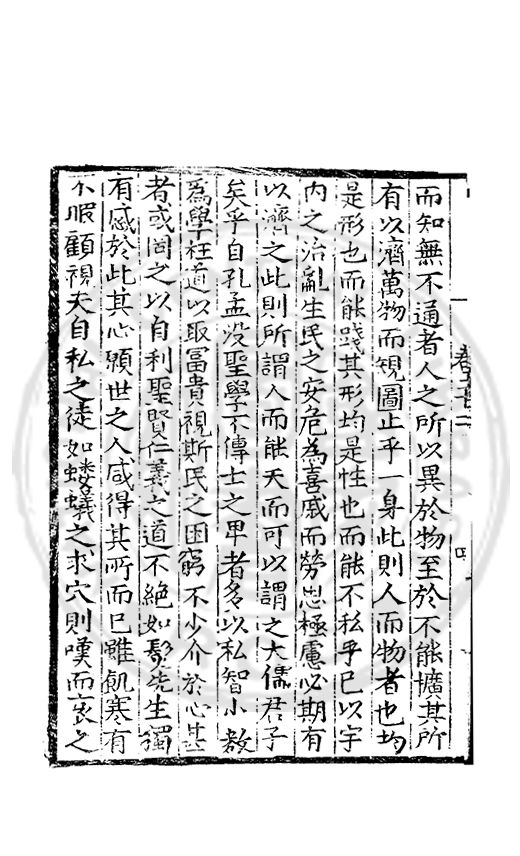 而知無不通者人之所以異於物至於不能擴其所
有以濟萬物而規圖止乎一身此則人而物者也均
是形也而能踐其形均是性也而能不私乎已以宇
内之治亂生民之安危為喜戚而勞思極慮必期有
以濟之此則所謂人而能天而可以謂之大儒君子
矣乎自孔孟没聖學不傳士之卑者多以私智小數
爲學枉道以取冨貴視斯民之困窮不少介於心甚
者或罔之以自利聖賢仁義之道不絶如髮先生獨
有感於此其心願世之人咸得其所而已雖飢寒有
不暇顧視夫自私之徒如螻蟻之求穴則嘆而哀之